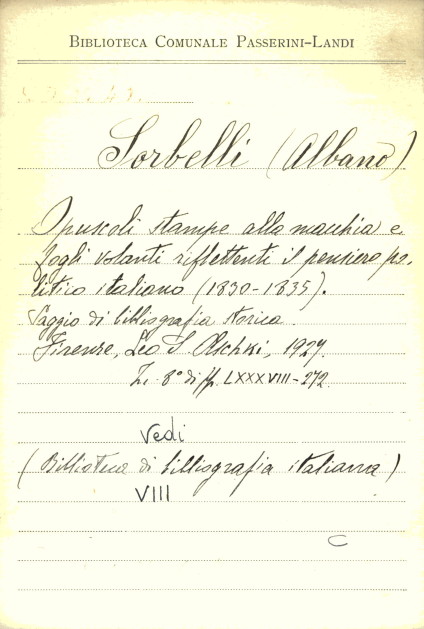 BIBLIOTECA COMUNALE PASSERINI-LANDI
Sorbelli (Albano)
Opuscoli stampe alla macchia e
fogli volanti riflettenti il pensiero po-
litico italiano (1830-1835).
Saggio di bibliografia storica.
Firenze, Leo S. Olschki, 1927.
In 8° di pp. LXXXVIII-272
Vedi
(Biblioteca di bibliografia italiana)
VIII
C